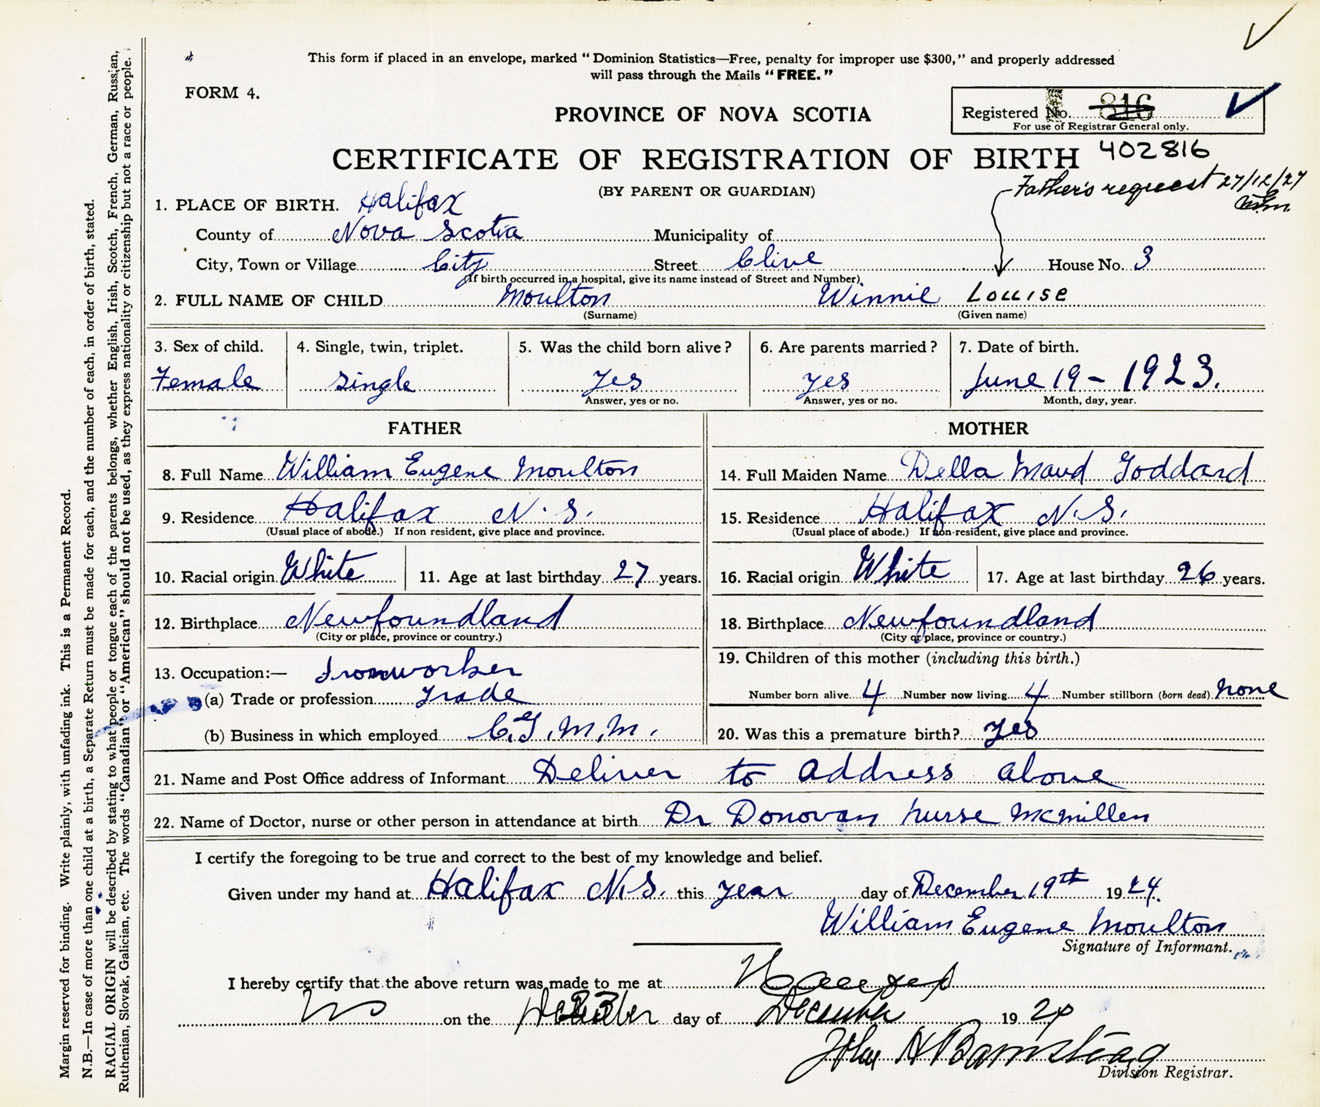 This form if placed in an envelope, marked "Dominion Statistics—Free, penalty for improper use $300," and properly addressed
will pass through the Mails "FREE."
FORM 4.
PROVINCE OF NOVA SCOTIA
Registered No. 816
For use of Registrar General only.
CERTIFICATE OF REGISTRATION OF BIRTH 402816
(BY PARENT OR GUARDIAN)
Father's request 27/12/27
1. PLACE OF BIRTH. Halifax
County of Nova Scotia Municipality of
City, Town or Village City Street Clive House No. 3
(If birth occurred in a hospital, give its name instead of Street and Number).
2. FULL NAME OF CHILD Moulton Winnie Louise
(Surname) (Given name)
3. Sex of child. 4. Single, twin, triplet. 5. Was the child born alive? 6. Are parents married? 7. Date of birth.
Female Single Yes yes June 19 - 1923.
Answer, yes or no. Answer, yes or no. Month, day, year.
FATHER MOTHER
8. Full Name William Eugene Moulton 14. Full Maiden Name Della Maud Goddard
9. Residence Halifax N.S. 15. Residence Halifax N.S.
(Usual place of abode.) If non resident, give place and province. (Usual place of abode.) If non-resident, give place and province.
10. Racial origin White 11. Age at last birthday 27 years. 16. Racial origin White 17. Age at last birthday 26 years.
12. Birthplace Newfoundland 18. Birthplace Newfoundland
(City or place, province or country.) (City or place, province or country.)
13. Occupation:— Ironworker 19. Children of this mother (including this birth.)
(a) Trade or profession Trade Number born alive 4 Number now living 4 Number stillborn (born dead) none
(b) Business in which employed C.G.M.M. 20. Was this a premature birth? Yes
21. Name and Post Office address of Informant Deliver to address above
22. Name of Doctor, nurse or other person in attendance at birth Dr Donovan nurse McMillen
I certify the foregoing to be true and correct to the best of my knowledge and belief.
Given under my hand at Halifax N.S. this year day of December 19th 1924.
William Eugene Moulton
Signature of Informant.
I hereby certify that the above return was made to me at Halifax
NS on the 23 day of December 1924
John H Barnstead
Division Registrar.
Margin reserved for binding. Write plainly, with unfading ink. This is a Permanent Record.
N.B.—In case of more than one child at a birth, a Separate Return must be made for each, and the number of each, in order of birth, stated.
RACIAL ORIGIN will be described by stating to what people or tongue each of the parents belongs, whether English, Irish, Scotch, French, German, Russian,
Ruthenian, Slovak, Galician, etc. The words "Canadian" or "American" should not be used, as they express nationality or citizenship but not a race or people.